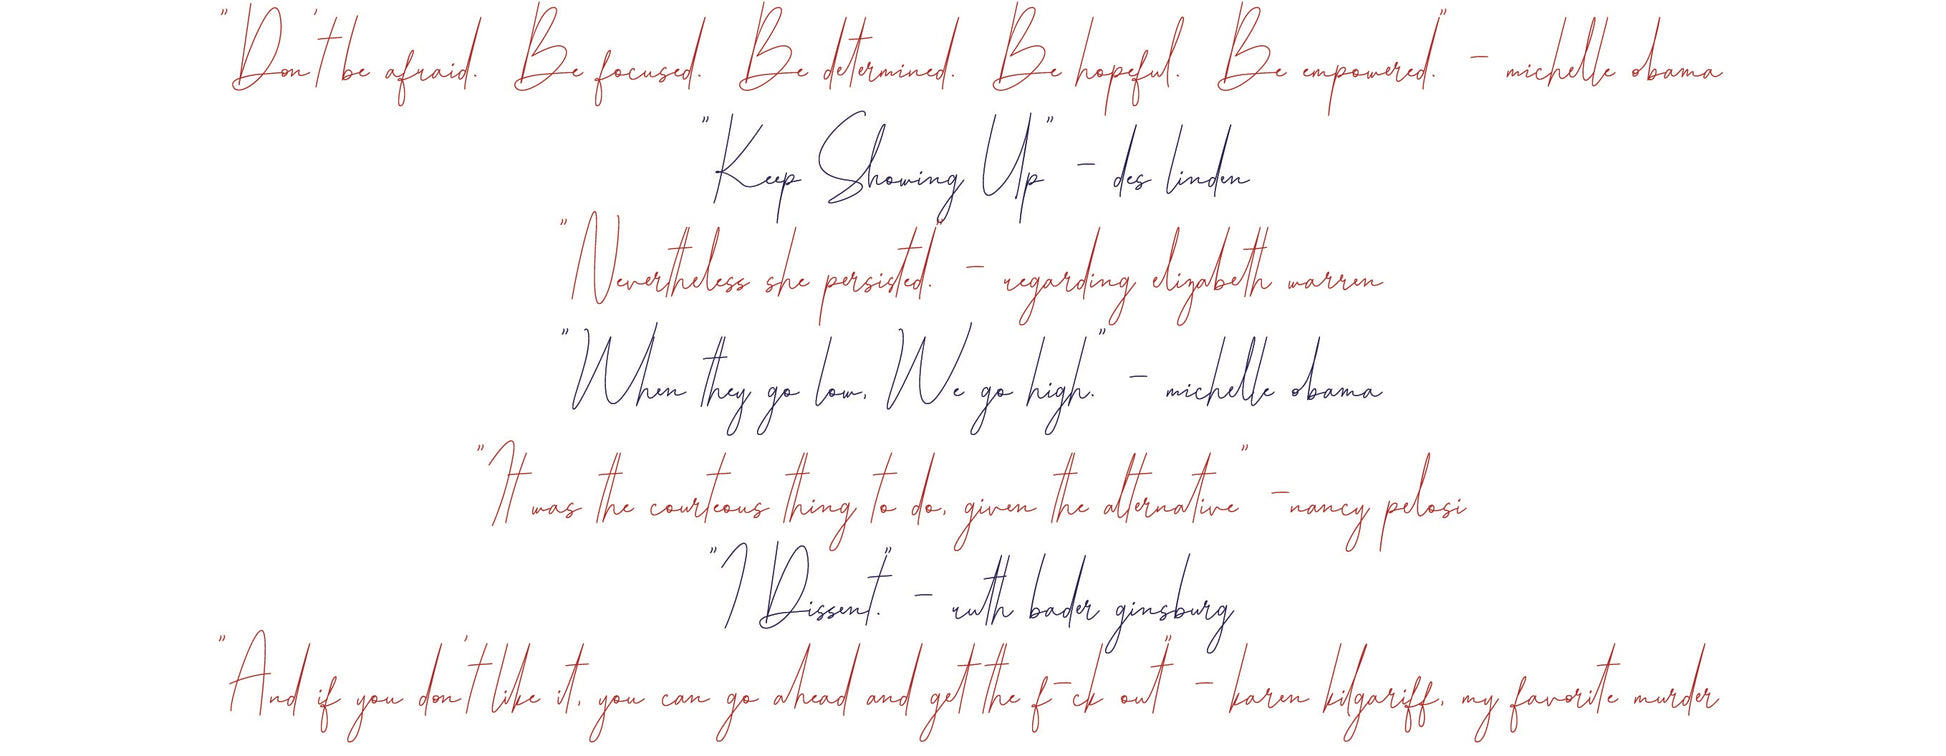 "Don't be afraid. Be focused. Be determined. Be hopeful. Be empowered." - michelle obama
"Keep Showing Up" - des linden
"Nevertheless she persisted." - regarding elizabeth warren
"When they go low, We go high." - michelle obama
"It was the courteous thing to do, given the alternative" -nancy pelosi
"I Dissent." - ruth bader ginsburg
"And if you don't like it, you can go ahead and get the f-ck out" - karen kilgariff, my favorite murder